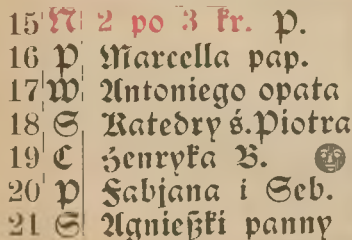 15 N 2 po 3 kr. P.
16 P Marcella pap.
17 W Antoniego opata
18 S Katedry ś. Piotra
19 C Henryka B.
20 P Fabjana i Seb.
21 S Agnießki panny